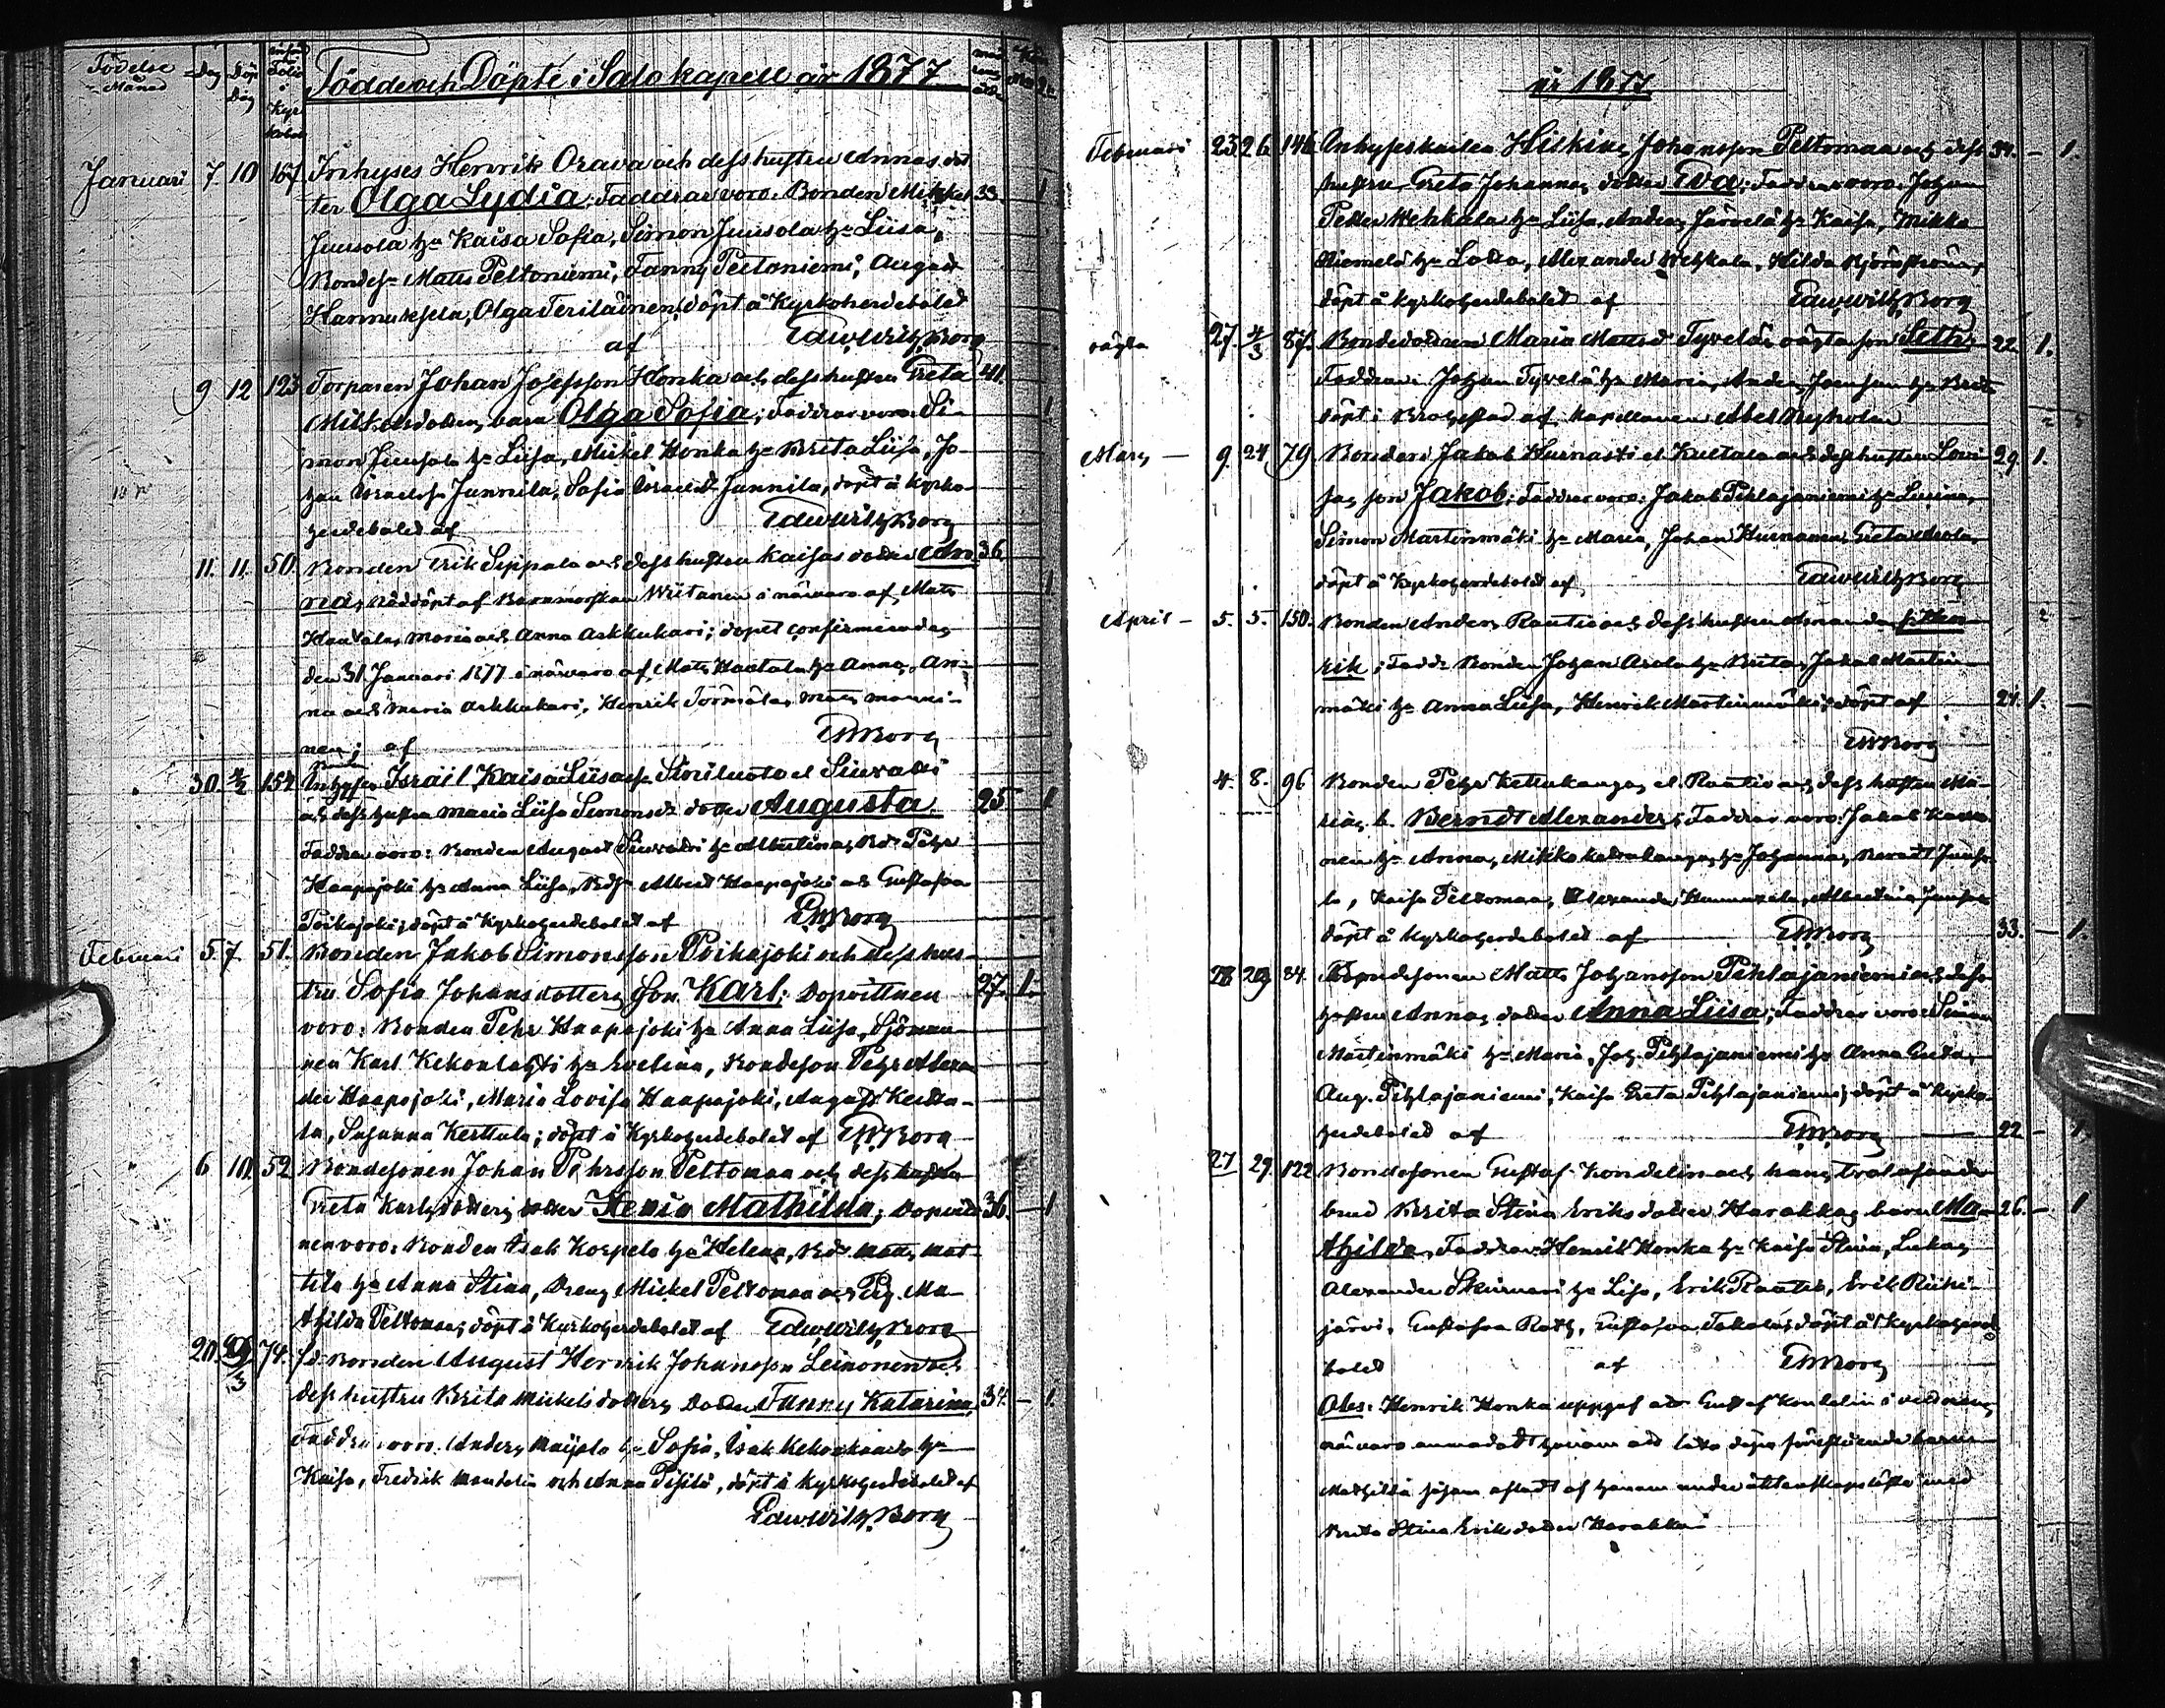 Födelse Månad Dag Döp Dag Folio i Kyr kobok
Födde och Döpte i Salo kapell år 1877
Januari 7. 10 167. Inhyses Henrik Orava och dess hustru Annas dot
ter Olga Lydia; Faddrar voro: Bonden Mikkel 33. 1
Juusola h:a Kaisa Sofia, Simon Juusola h:a Liisa,
Bondes: Matts Peltoniemi, Fanny Peltoniemi, August
Harmuksela, Olga Teriläinen, döpt å Kyrkoherdebolet
af Edw. Wilh. Borg
9 12 123 Torparen Johan Josefsson Honka och dess hustru Greta 41.
Mickelsdotters barn Olga Sofia; Faddrar voro: Si- 1
mon Juusola h:a Liisa, Mickel Honka h:a Brita Liisa, Jo-
han Israelss: Junnila, Sofia Israelsd: Junnila, döpt å Kyrko-
herdebolet af Edw Wilh Borg
11. 11. 50. Bonden Erik Sippala och dess hustru Kaisas dotter An- 36.
na, nöddöpt af Barnmorskan Wiitanen i närvaro af Matts 1
Haatala, Maria och Anna Arkkukari; dopet confirmerades
den 31 Januari 1877 i närvaro af Matts Haatala h:a Anna, An-
na och Maria Arkkukari, Henrik Törmälä, Matts Manni-
nen; af EWBorg
30. 4/2 154 Inhyses Israil Kaisa Liisas: Siniluoto el Siuvatti
och dess hustru Maria Liisa Simonsd: dotter Augusta. 25 1
Faddrar voro: Bonden August Siuvatti h:a Albertina, Bd: Pehr
Haapajoki h:a Anna Liisa, Bds: Albert Haapajoki och Gustafva
Poikajoki; döpt å Kyrkoherdebolet af EWBorg
Februari 5 7. 51. Bonden Jakob Simonsson Poikajoki och dess hus-
tru Sofia Johansdotters Son Karl; Dopvittnen 27. 1.
voro: Bonden Pehr Haapajoki h:a Anna Liisa, Sjöman-
nen Karl Kekonlahti h:a Evelina, Bondeson Pehr Alexan
der Haapajoki, Maria Lovisa Haapajoki, August Kertu-
la, Susanna Kerttula; döpt å Kyrkoherdebolet af EWBorg
6 10. 52 Bondesonen Johan Pehrsson Peltomaa och dess hustru
Greta Karlsdotters dotter Mathilda; Dopvitt- 36. 1
nen voro: Bonden Isak Korpela h:a Helena, Bd: Matts Mat-
tila h:a Anna Stina, Dreng Mickel Peltomaa och Pig. Ma-
thilda Peltomaa; döpt å Kyrkoherdebolet af Edw Wilh Borg
20. /3 74. fd. Bonden August Henrik Johansson Leinonen och
dess hustru Brita Mickelsdotters Dotter Fanny Katarina, 34. - 1.
Faddrar voro: Anders h:a Sofia, Isak h:a
Kaisa, Fredrik och Anna, döpt å Kyrkoherdebolet af
Edw Wilh. Borg
år 1877.
Februari 23 26 146 Inhyses Johansson Peltomaa och dess 34. - 1.
hustru Greta Johannas dotter Eva; Faddrar voro: Johan
Petter Wehkala h:a Liisa, Anders Järvelä h:a Kaisa, Mikko
Niemelä h:a Lotta, Alexander Wehkala, Hilda
döpt å Kyrkoherdebolet af Edw Wilh Borg
oägta 27. 4/3 87. Bondedottren Maria Mattsd: Tyveläs oägta son Seth; 22. 1.
Faddrar: Johan Tyvelä h:a Maria, Anders h:a Brita
döpt i Brahestad af Kapellanen Abel Nyholm
2
Mars - 9. 24 79 Bonden Jakob Hurnasti el Kultala och dess hustru Lovi- 29. 1.
sas son Jakob; Faddrar voro: Jakob Pihlajaniemi h:a
Simon Martinmäki h:a Maria, Johan Greta
döpt å Kyrkoherdebolet af Edw Wilh Borg
April - 5. 5. 150. Bonden Anders Rautio och dess hustru Amandas s: Hen- 2
rik; Fadd: Bonden Johan Arola h:a Brita, Jakob Martin-
mäki h:a Anna Liisa, Henrik Martinmäki; döpt af 24. 1.
EWBorg
4. 8. 96 Bonden Pehr Kettukangas el Rautio och dess hustru Ma-
rias b. Berndt Alexander; Faddrar voro: Jakob
nen h:a Anna, Mikko h:a Johanna, Berndt Juuso
la, Kaisa Peltomaa, Alexander Albertina
döpt å Kyrkoherdebolet af EWBorg 33. - 1.
28 29 84. Bondesonen Matts Johansson Pihlajaniemi och dess
hustru Annas dotter Anna Liisa; Faddrar voro: Simon
Martinmäki h:a Maria, Joh. Pihlajaniemi h:a Anna Greta,
Aug. Pihlajaniemi, Kaisa Greta Pihlajaniemi; döpt å Kyrko-
herdebolet af EWBorg 22 - 1.
27 29. 122 Bondesonen Gustaf Kondelin och hans trolofvade
brud Brita Stina Eriksdotter Harakkas barn Ma- 26. - 1
thilda, Faddrar: Henrik Honka h:a Kaisa Stina, Lukas
Alexander h:a Lisa, Erik Rautio, Erik
järvi, Gustafva Gustafva döpt å Kyrkoherde
bolet af EWBorg
Obs: Henrik Honka uppgaf att Gustaf Kondelin i vittnens
närvaro anmodat honom att låta döpa förestående barn
Mathilda såsom afladt af honom under äktenskapslöfte med
Brita Stina Eriksdotter Harakka